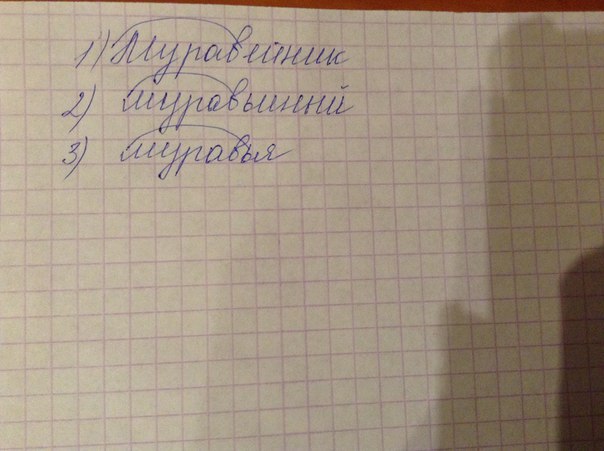 1) Муравейник
2) муравьиный
3) муравья